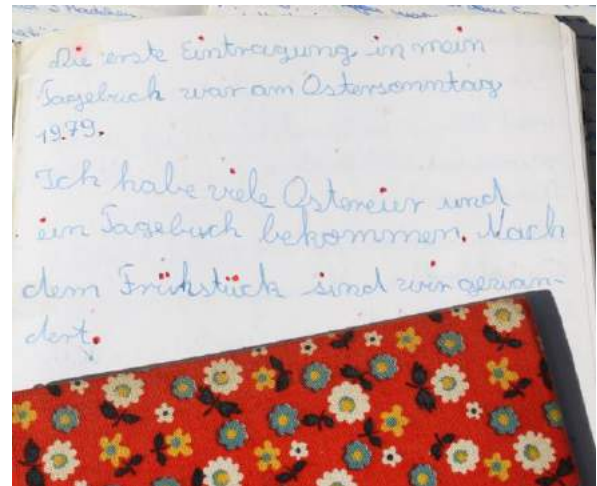 Die erste Eintragung in mein
Tagebuch war am Ostersonntag
1979.
Ich habe viele Ostereier und
ein Tagebuch bekommen. Nach
dem Frühstück sind wir gewan-
dert.